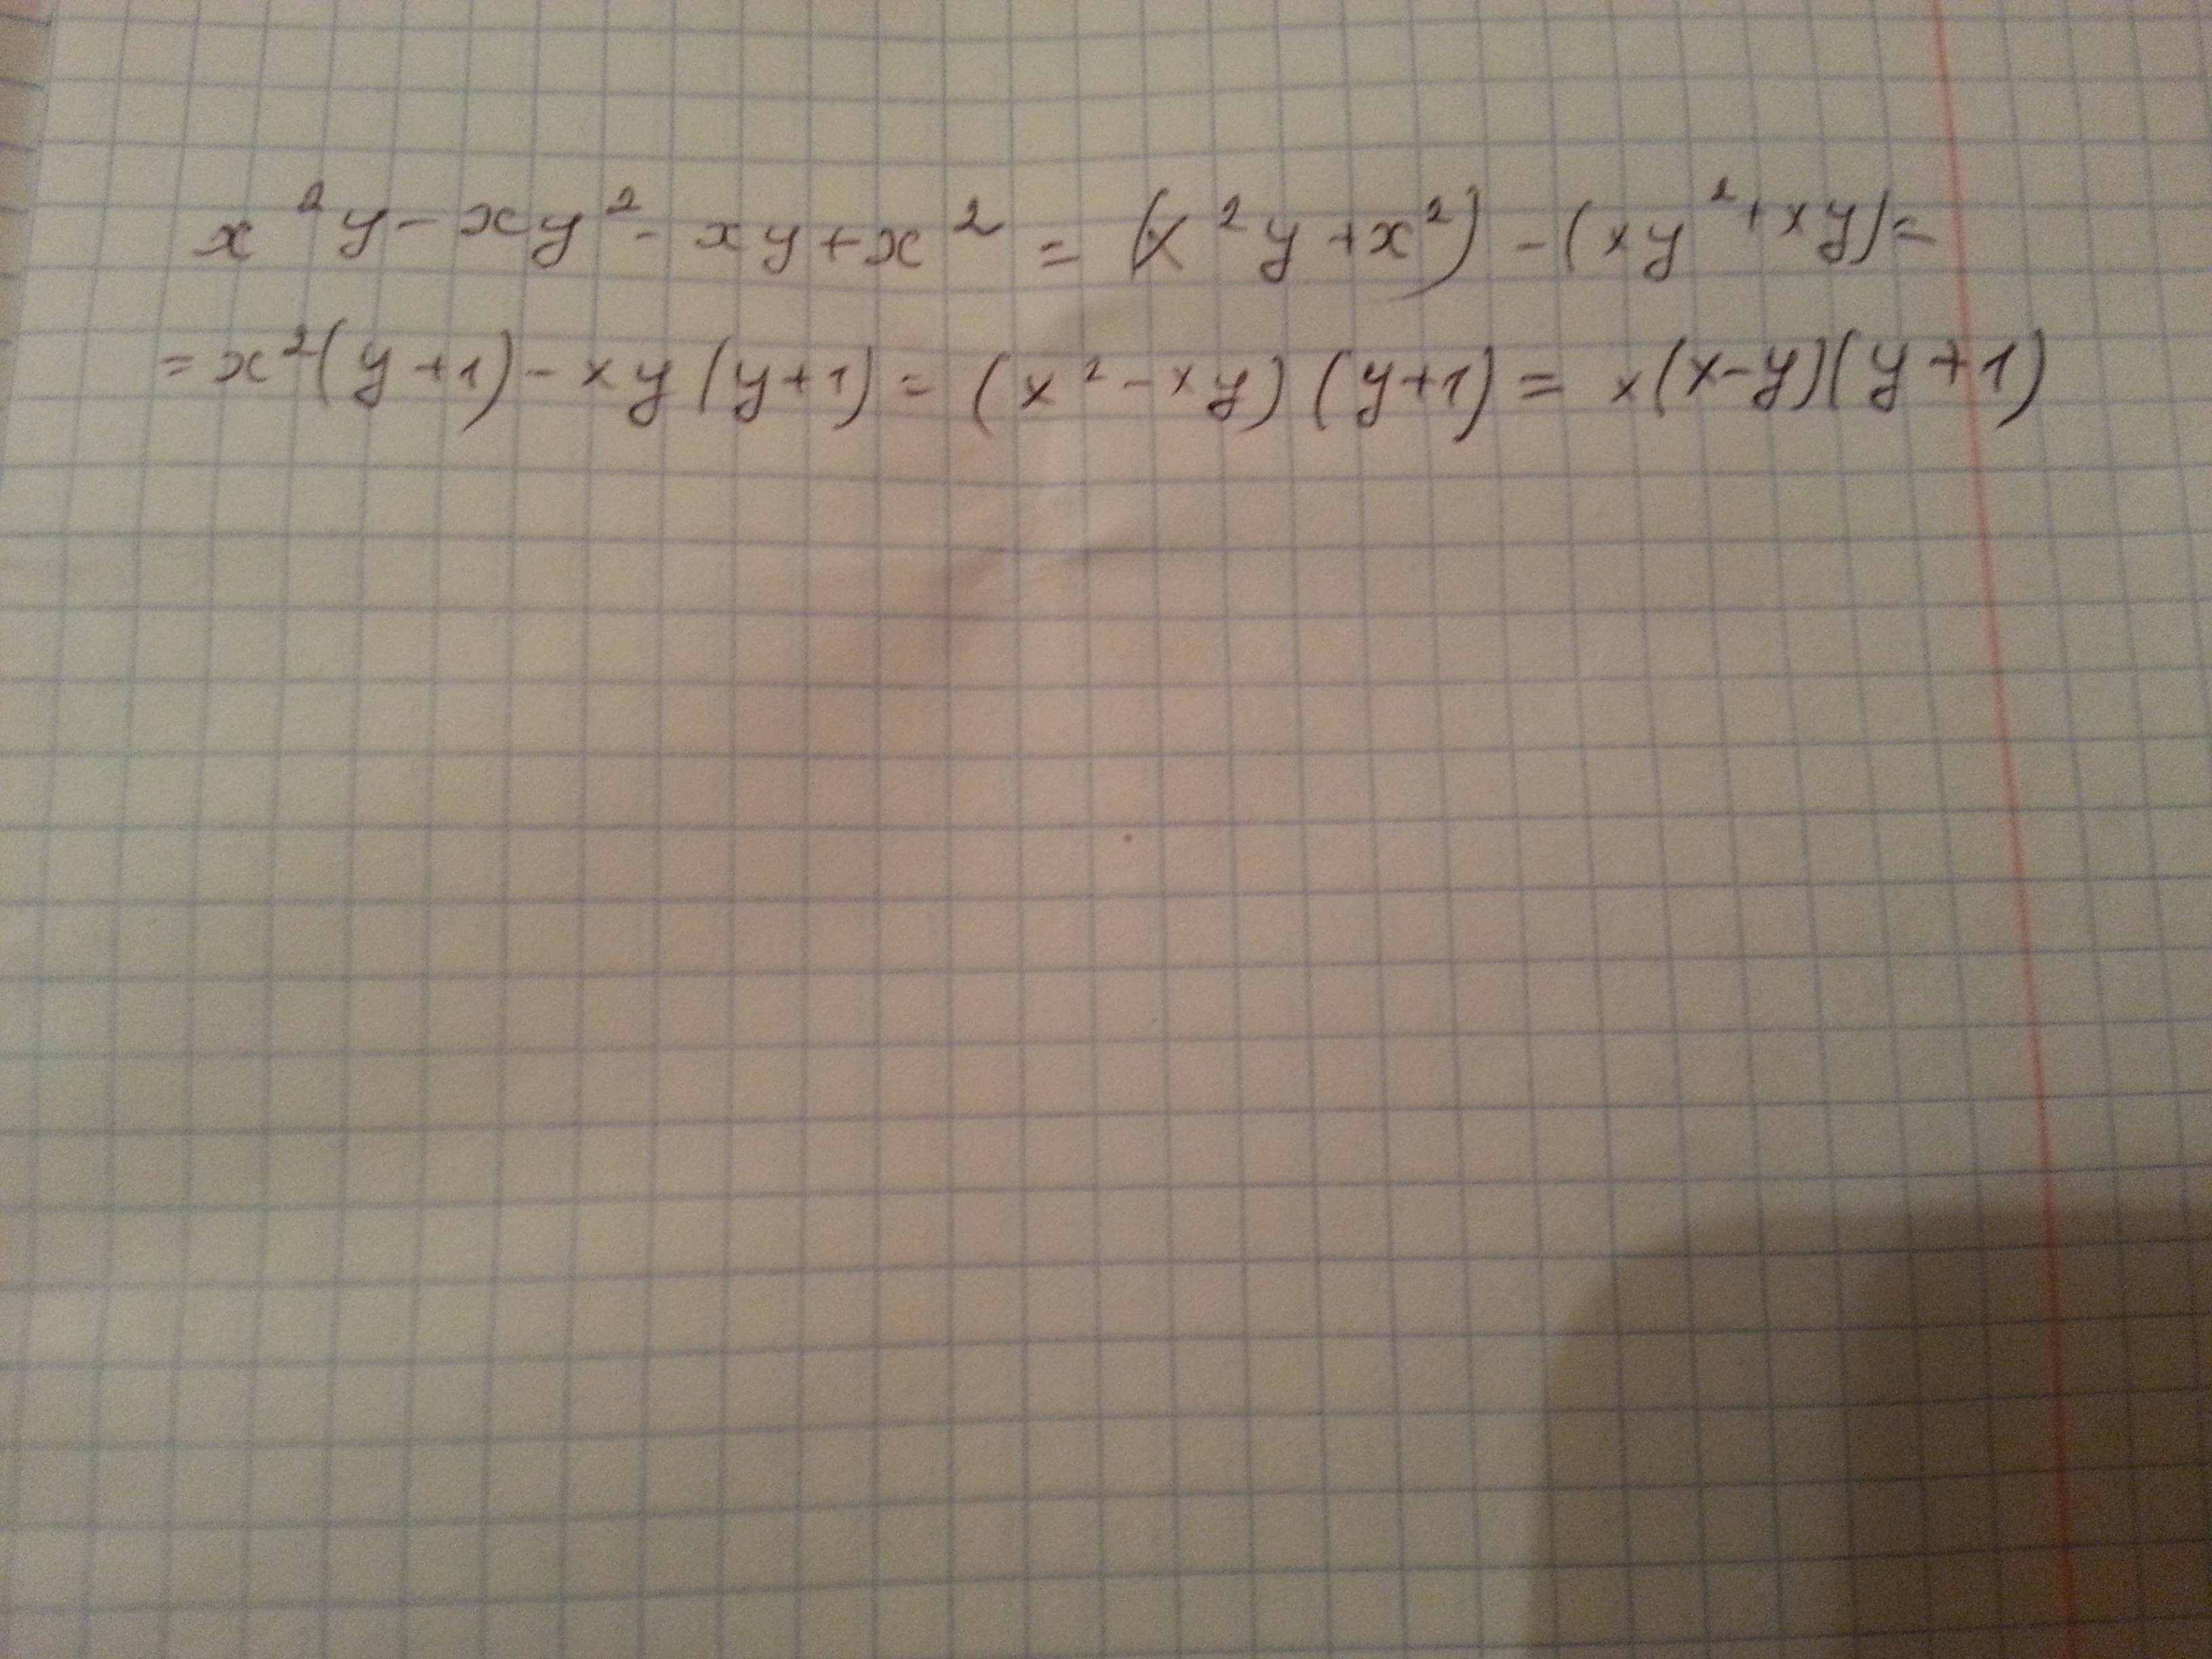 x²y - xy² - xy + x² = (x²y + x²) - (xy² + xy) =
= x²(y+1) - xy(y+1) = (x² - xy)(y+1) = x(x-y)(y+1)